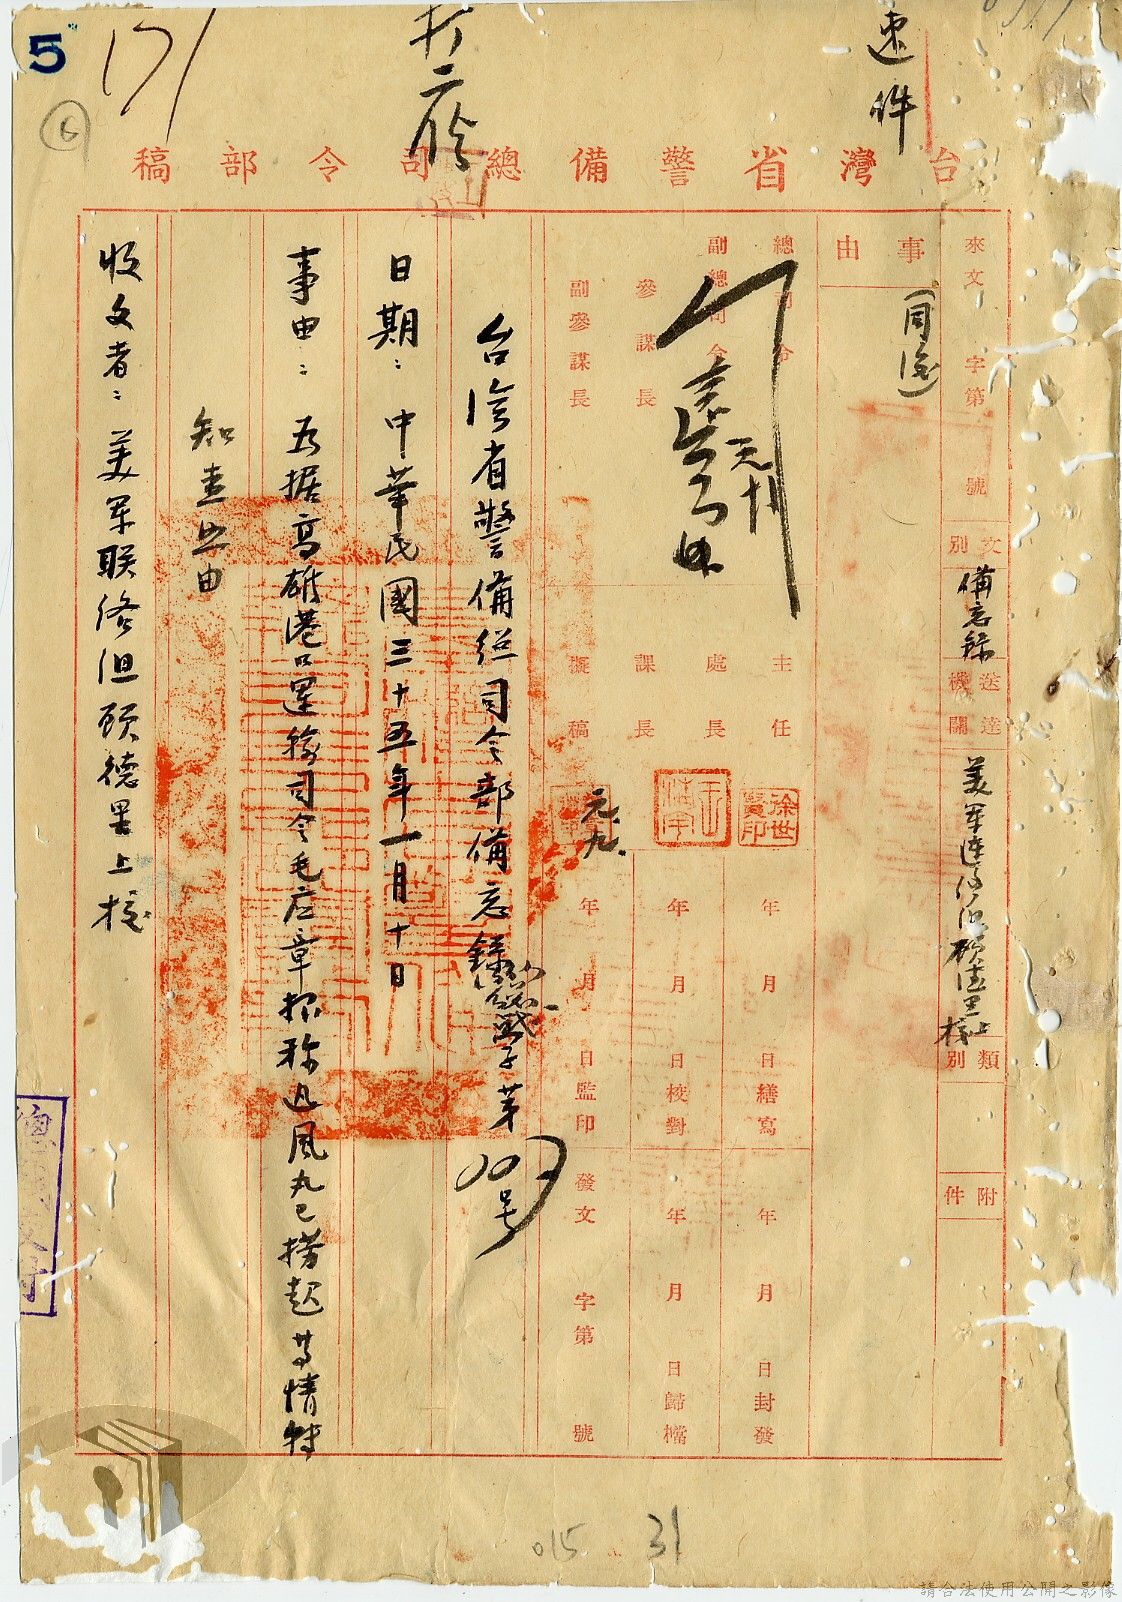 5
171
6
打二份
速件
台灣省警備總司令部稿
來文 字第 號
文別
備忘錄
送達機關
美軍連絡組顧德里上校
類別
附件
事由
(同後)
總司令
副總司令
參謀長
副參謀長
元
主任
處長
課長
擬稿
涂世賢印
元.九.
年 月 日繕寫
年 月 日校對
年 月 日監印
年 月 日封發
年 月 日歸檔
發文 字第 號
台灣省警備總司令部備忘錄
字第
号
日期：中華民國三十五年一月十日
事由：為据高雄港口運輸司令毛应章报称迅風丸已撈起等情特
知查照由
收文者：美军联络组顾德里上校
015
31
請合法使用公開之影像